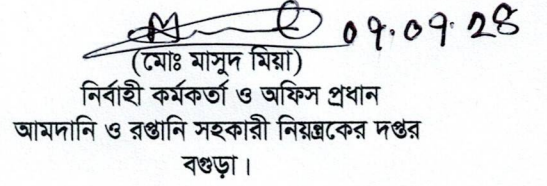 ০৭.০৭.২৪
(মোঃ মাসুদ মিয়া)
নির্বাহী কর্মকর্তা ও অফিস প্রধান
আমদানি ও রপ্তানি সহকারী নিয়ন্ত্রকের দপ্তর
বগুড়া।